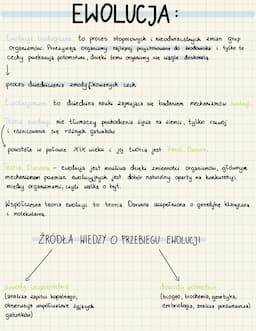 EWOLUCJA:
Ewolucja biologiczna to proces stopniowych i nieodwracalnych zmian grup
organizmów. Przeżywają organizmy najlepiej przystosowane do środowiska i tylko te
cechy przekazują potomstwu, dzięki temu organizmy się ciągle doskonalą.
proces dziedziczenia zmodyfikowanych cech
Ewolucjonizm to dziedzina nauki zajmująca się badaniem mechanizmów ewolucji.
Teoria ewolucji nie tłumaczy pochodzenia życia na ziemi, tylko rozwój
i różnicowanie się różnych gatunków
powstała w połowie XIX wieku i jej twórcą jest Karol Darwin.
Teoria Darwina - ewolucja jest możliwa dzięki zmienności organizmów, głównym
mechanizmem przemian ewolucyjnych jest dobór naturalny oparty na konkurencji
między organizmami, czyli walka o byt.
Współczesna teoria ewolucji to teoria Darwina uzupełniona o genetykę klasyczną
i molekularną.
ŹRÓDŁA WIEDZY O PRZEBIEGU EWOLUCJI
dowody bezpośrednie
(analiza zapisu kopalnego,
obserwacja współcześnie żyjących
gatunków)
dowody pośrednie
(biogeo, biochemia, genetyka,
embriologia, anatomia porównawcza)